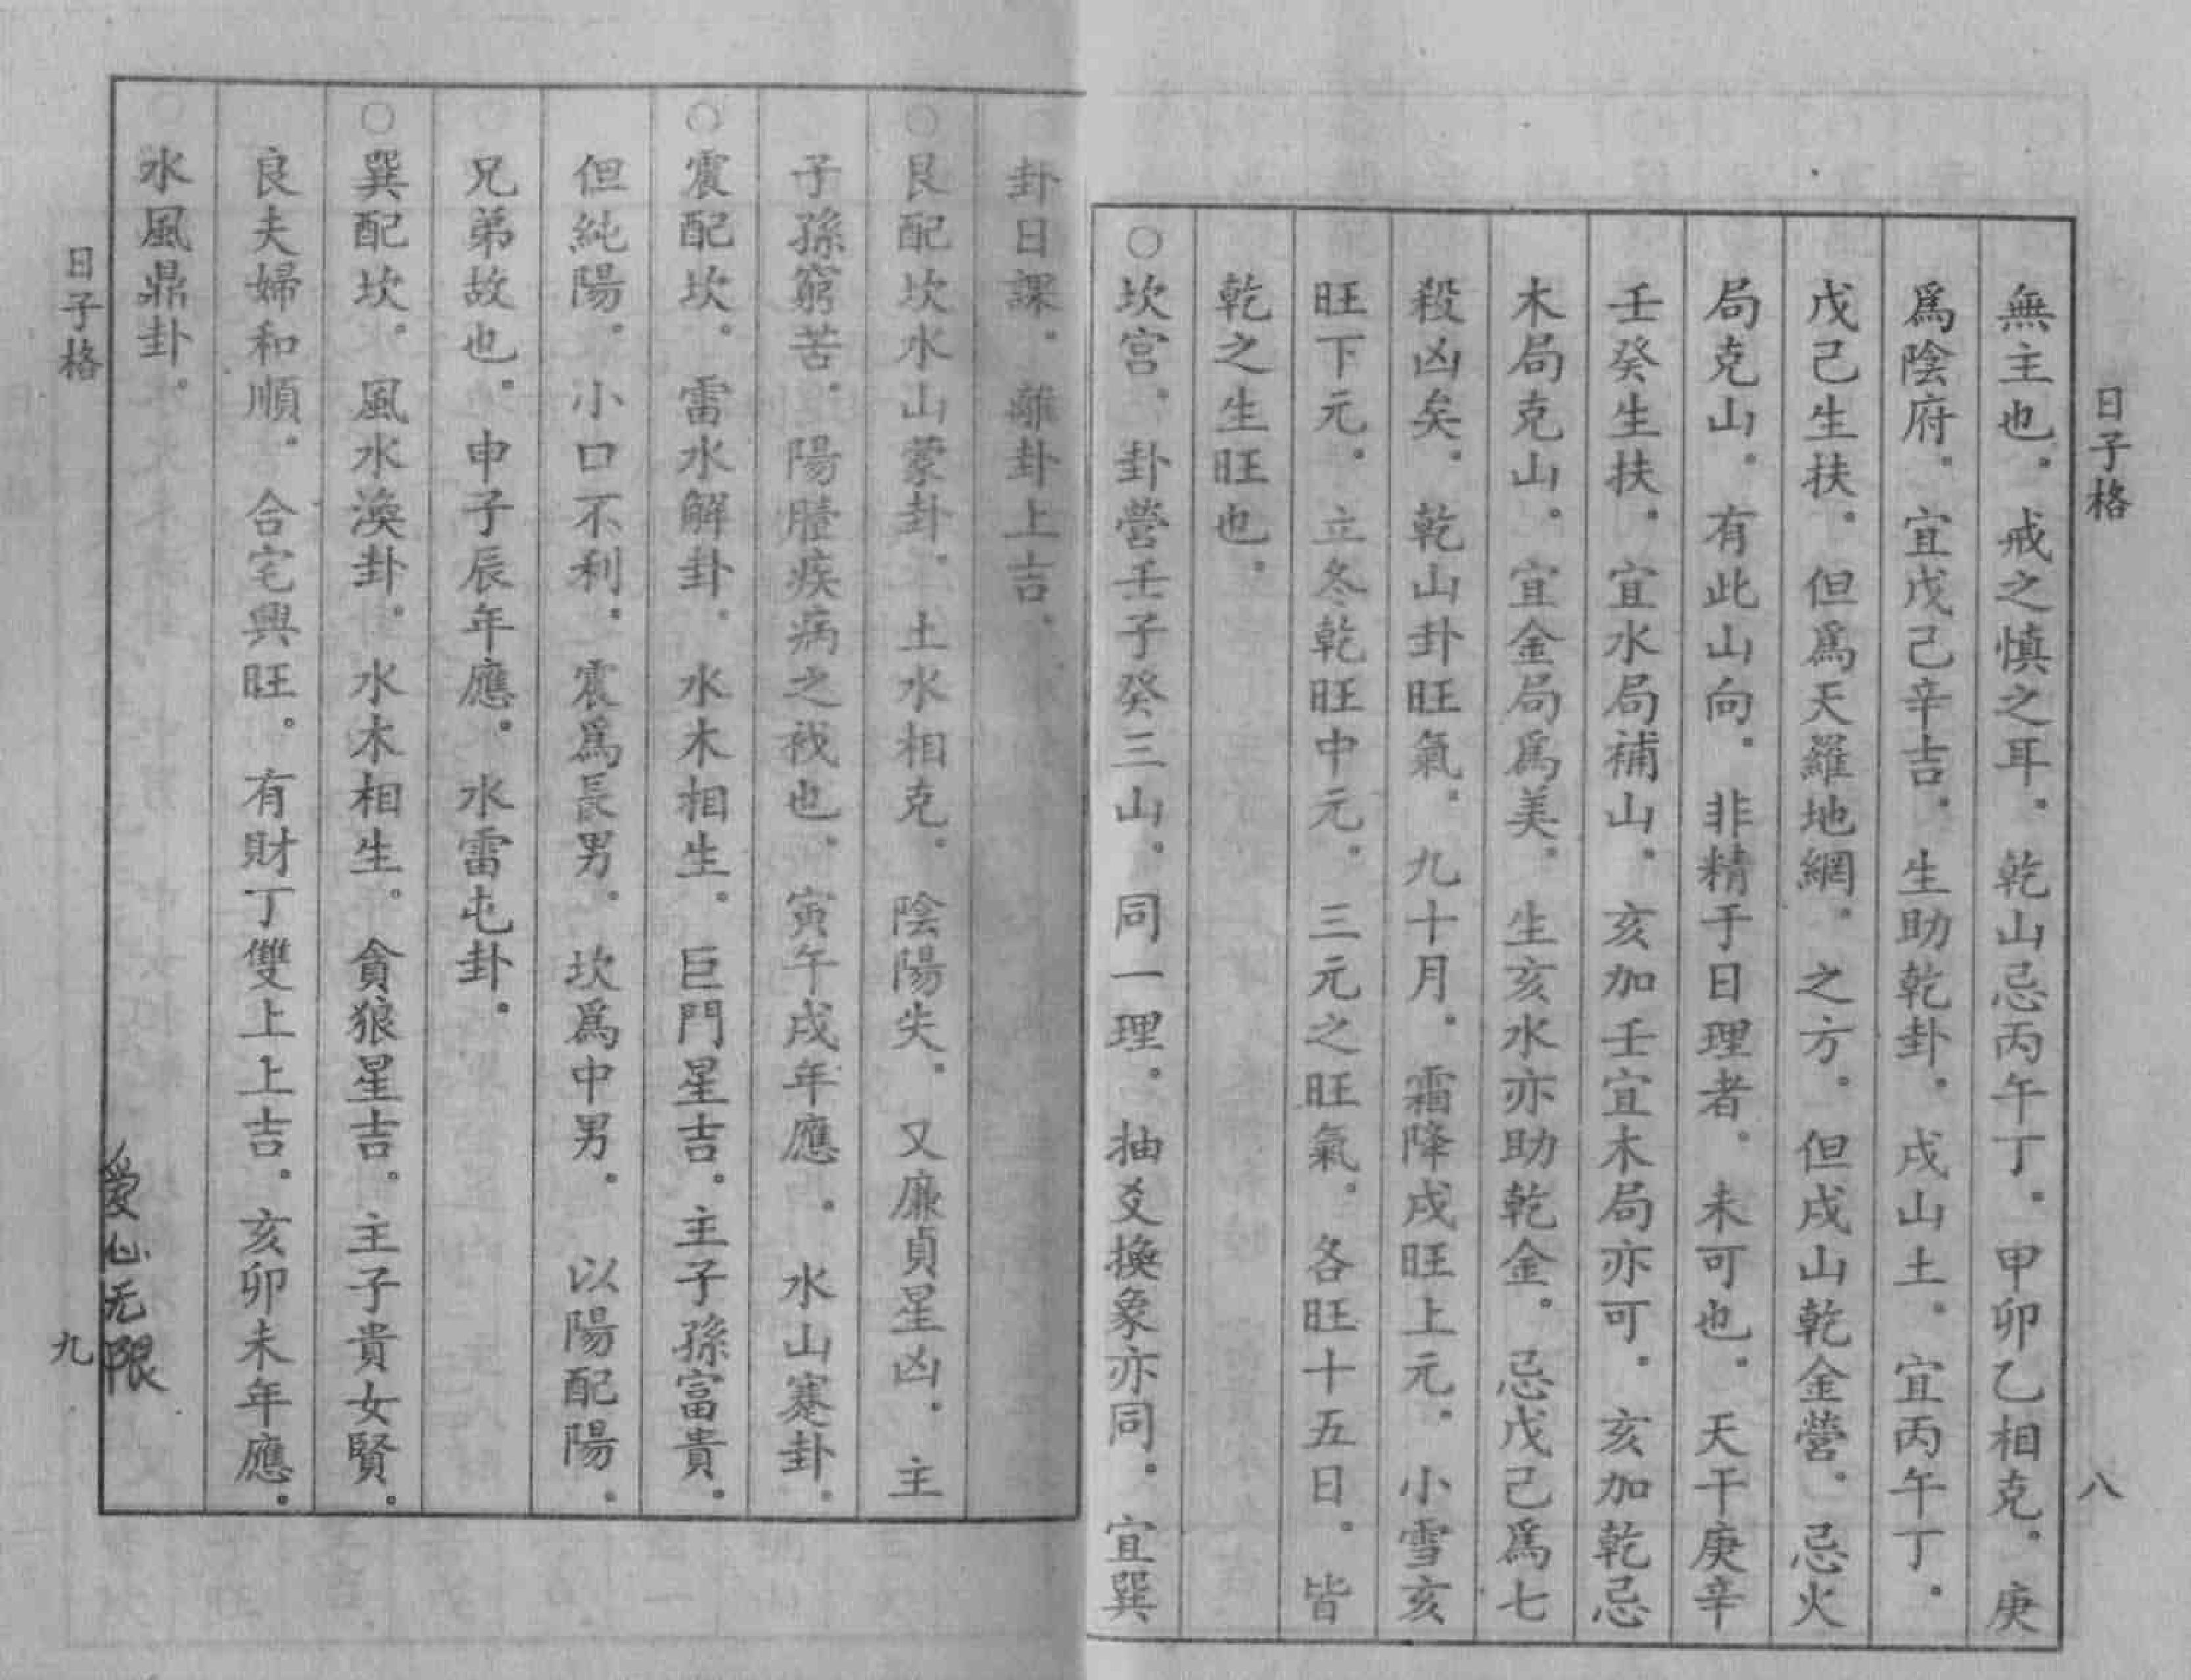 日子格
八
無主也。戒之慎之耳。乾山忌丙午丁。甲卯乙相克。庚
爲陰府。宜戊己辛吉。生助乾卦。戌山土。宜丙午丁。
戊己生扶。但爲天羅地網。之方。但戌山乾金營。忌火
局克山。有此山向。非精于日理者。未可也。天干庚辛
壬癸生扶。宜水局補山。亥加壬宜木局亦可。亥加乾忌
木局克山。宜金局爲美。生亥水亦助乾金。忌戊己爲七
殺凶矣。乾山卦旺氣。九十月。霜降戌旺上元。小雪亥
旺下元。立冬乾旺中元。三元之旺氣。各旺十五日。皆
乾之生旺也。
○坎宮。卦營壬子癸三山。同一理。抽爻換象亦同。宜巽
卦日課。離卦上吉。
○艮配坎水山蒙卦。土水相克。陰陽失。又廉貞星凶。主
子孫窮苦。陽腟疾病之祋也。寅午戌年應。水山蹇卦。
○震配坎。雷水解卦。水木相生。巨門星吉。主子孫富貴。
但純陽。小口不利。震爲長男。坎爲中男。以陽配陽。
兄弟故也。申子辰年應。水雷屯卦。
○巽配坎。風水渙卦。水木相生。貪狼星吉。主子貴女賢。
良夫婦和順。合宅興旺。有財丁雙上上吉。亥卯未年應。
水風鼎卦。
日子格
九
爱心无限